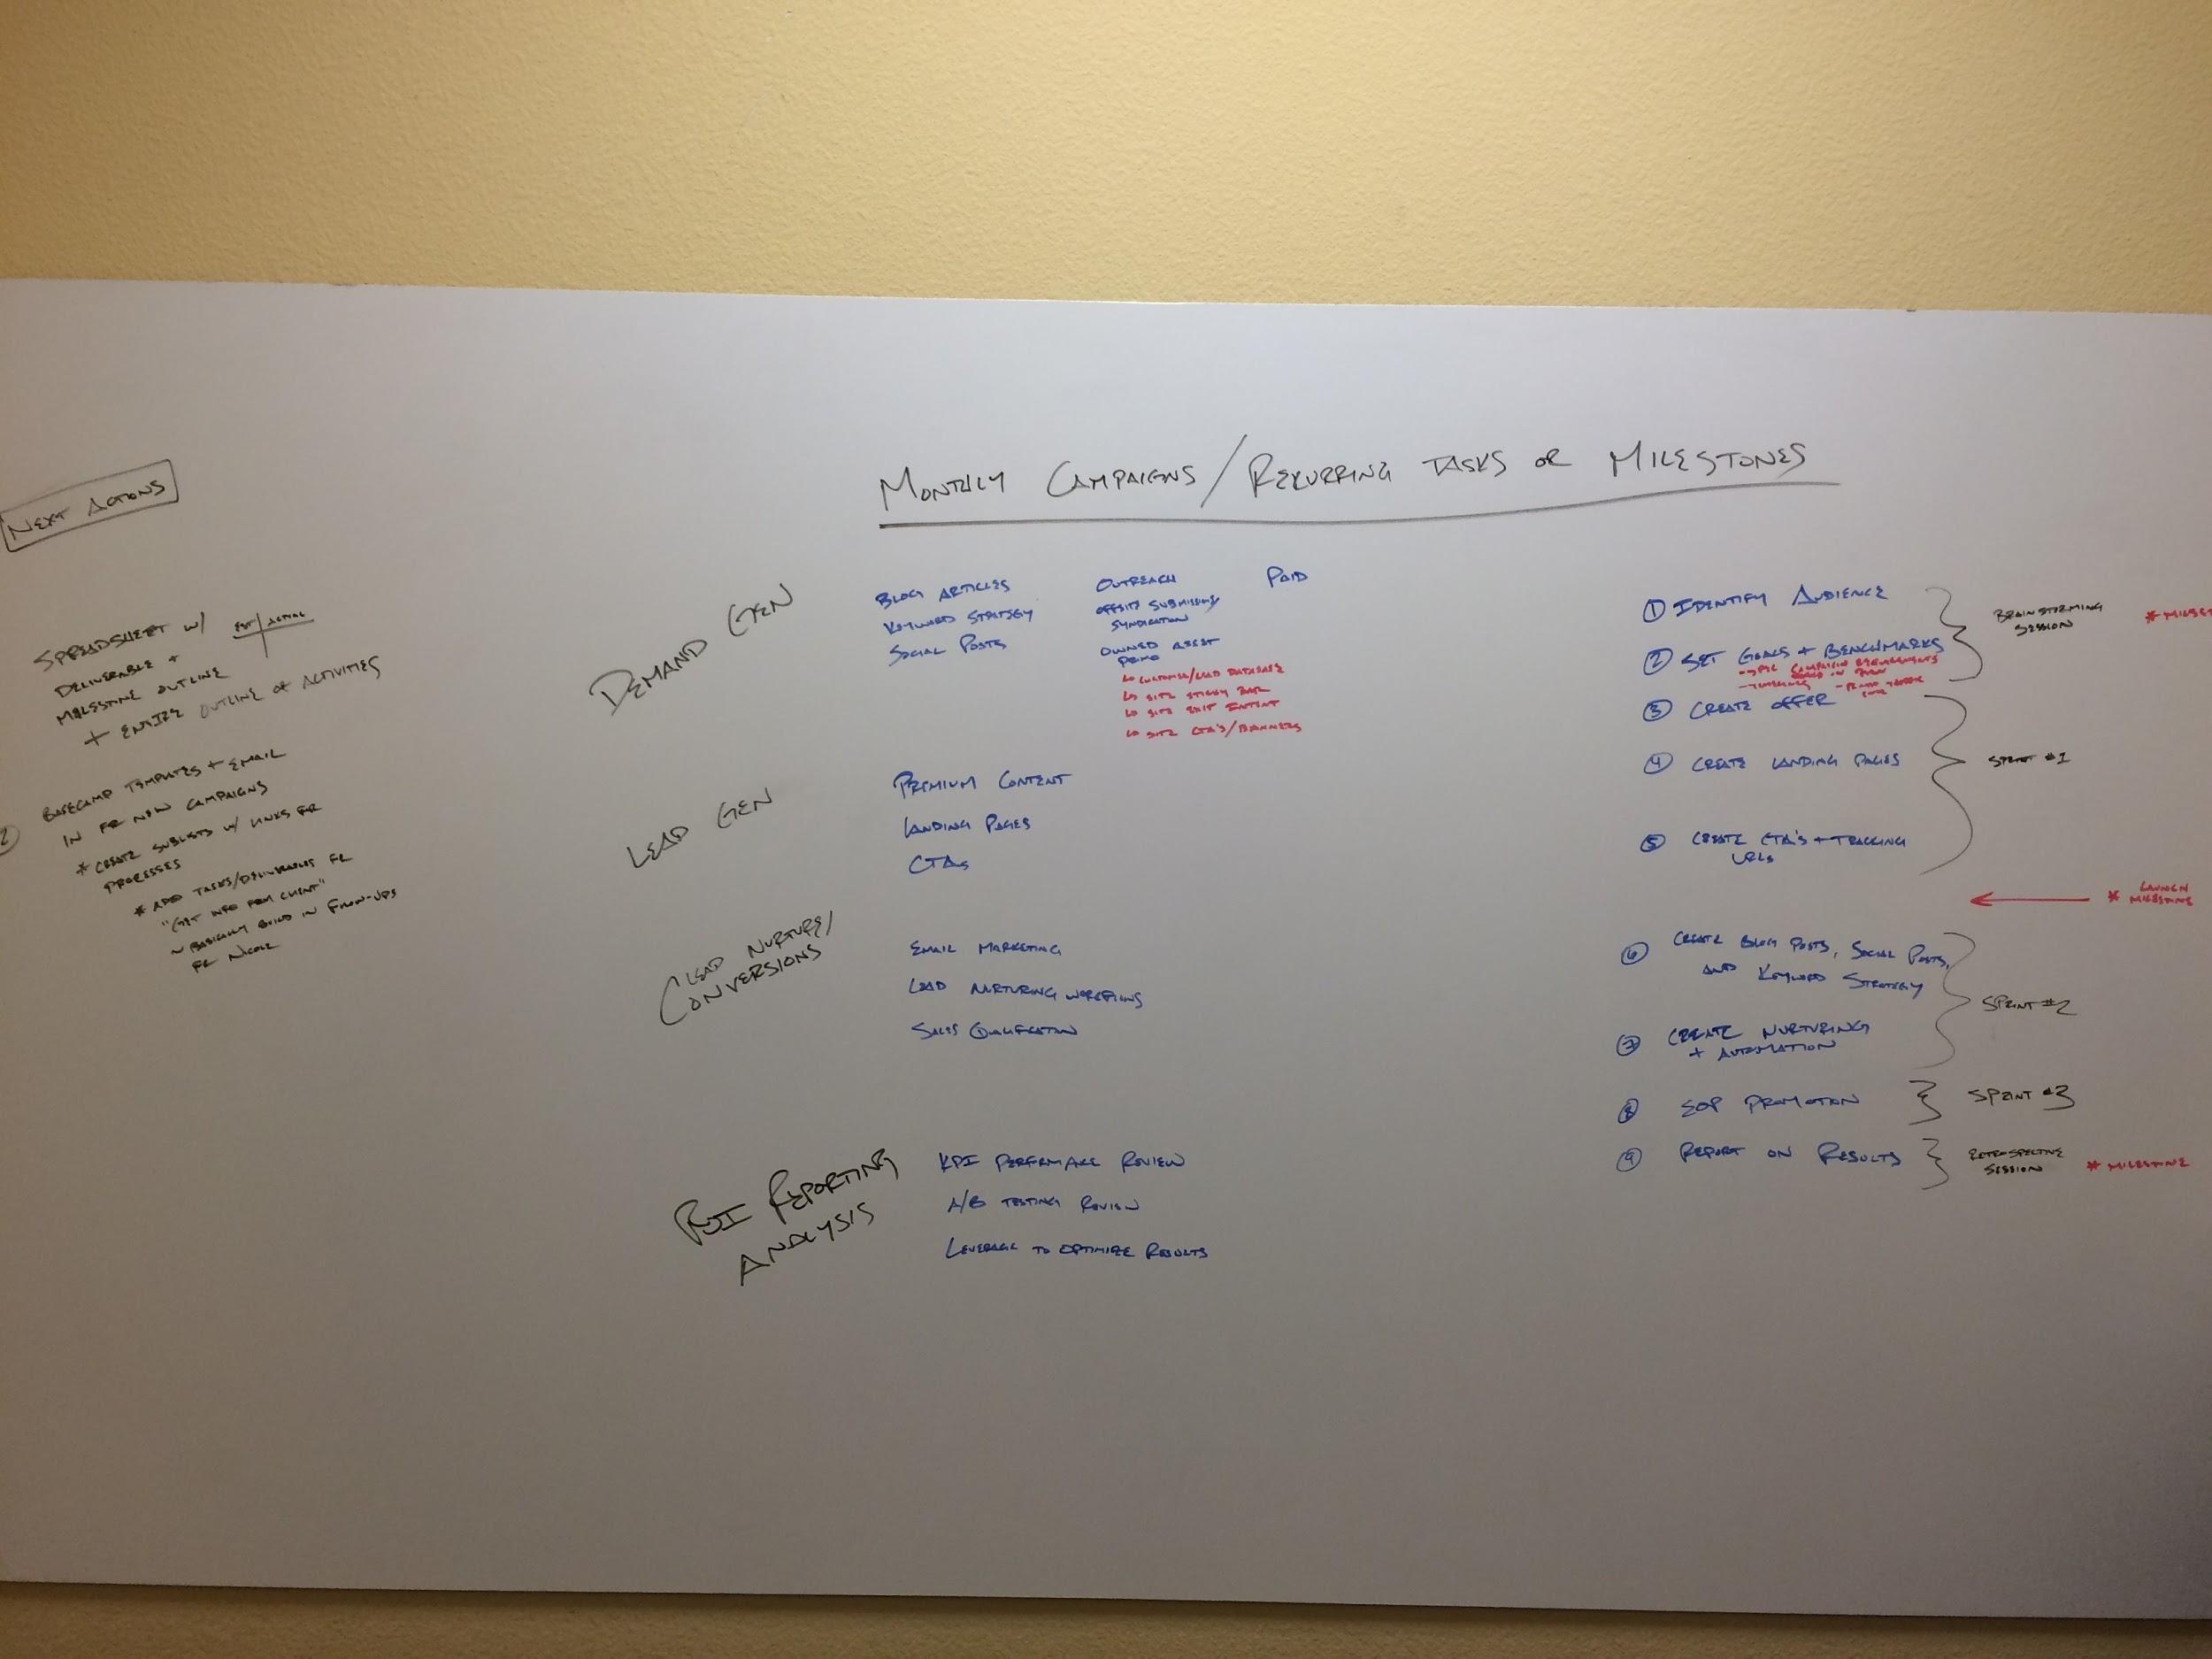 NEXT ACTIONS
SPREADSHEET W/ EST ACTUAL
DELIVERABLE +
MILESTONE OUTLINE
+ ENTIRE OUTLINE OF ACTIVITIES
2 BASECAMP TEMPLATES + EMAIL
IN FR NOW CAMPAIGNS
* CREATE SUBLISTS W/ LINKS FR
PROCESSES
* ADD TASKS/DELIVERABLES FR
"GET INFO FROM CLIENT"
~ BASICALLY BUILD IN FOLLOW-UPS
FR NICOLE
MONTHLY CAMPAIGNS/REKURRING TASKS OR MILESTONES
DEMAND GEN
BLOG ARTICLES
KEYWORD STRATEGY
SOCIAL POSTS
OUTREACH
OFFSITE SUBMISSIONS/
SYNDICATION
OWNED ASSET
PROMO
↳ CUSTOMER/LEAD DATABASE
↳ SITE STICKY BAR
↳ SITE EXIT INTENT
↳ SITE CTA'S/BANNERS
PAID
LEAD GEN
PREMIUM CONTENT
LANDING PAGES
CTAs
LEAD NURTURE/
CONVERSIONS
EMAIL MARKETING
LEAD NURTURING WORKFLOWS
SALES QUALIFICATION
ROI REPORTING
ANALYSIS
KPI PERFORMANCE REVIEW
A/B TESTING REVIEW
LEVERAGE TO OPTIMIZE RESULTS
① IDENTIFY AUDIENCE
② SET GOALS + BENCHMARKS
BRAINSTORMING
SESSION
③ CREATE OFFER
④ CREATE LANDING PAGES
⑤ CREATE CTA'S + TRACKING
URLs
SPRINT #1
* LAUNCH
MILESTONE
⑥ CREATE BLOG POSTS, SOCIAL POSTS,
AND KEYWORD STRATEGY
⑦ CREATE NURTURING
+ AUTOMATION
SPRINT #2
⑧ EOP PROMOTION
SPRINT #3
⑨ REPORT ON RESULTS
RETROSPECTIVE
SESSION
* MILESTONE